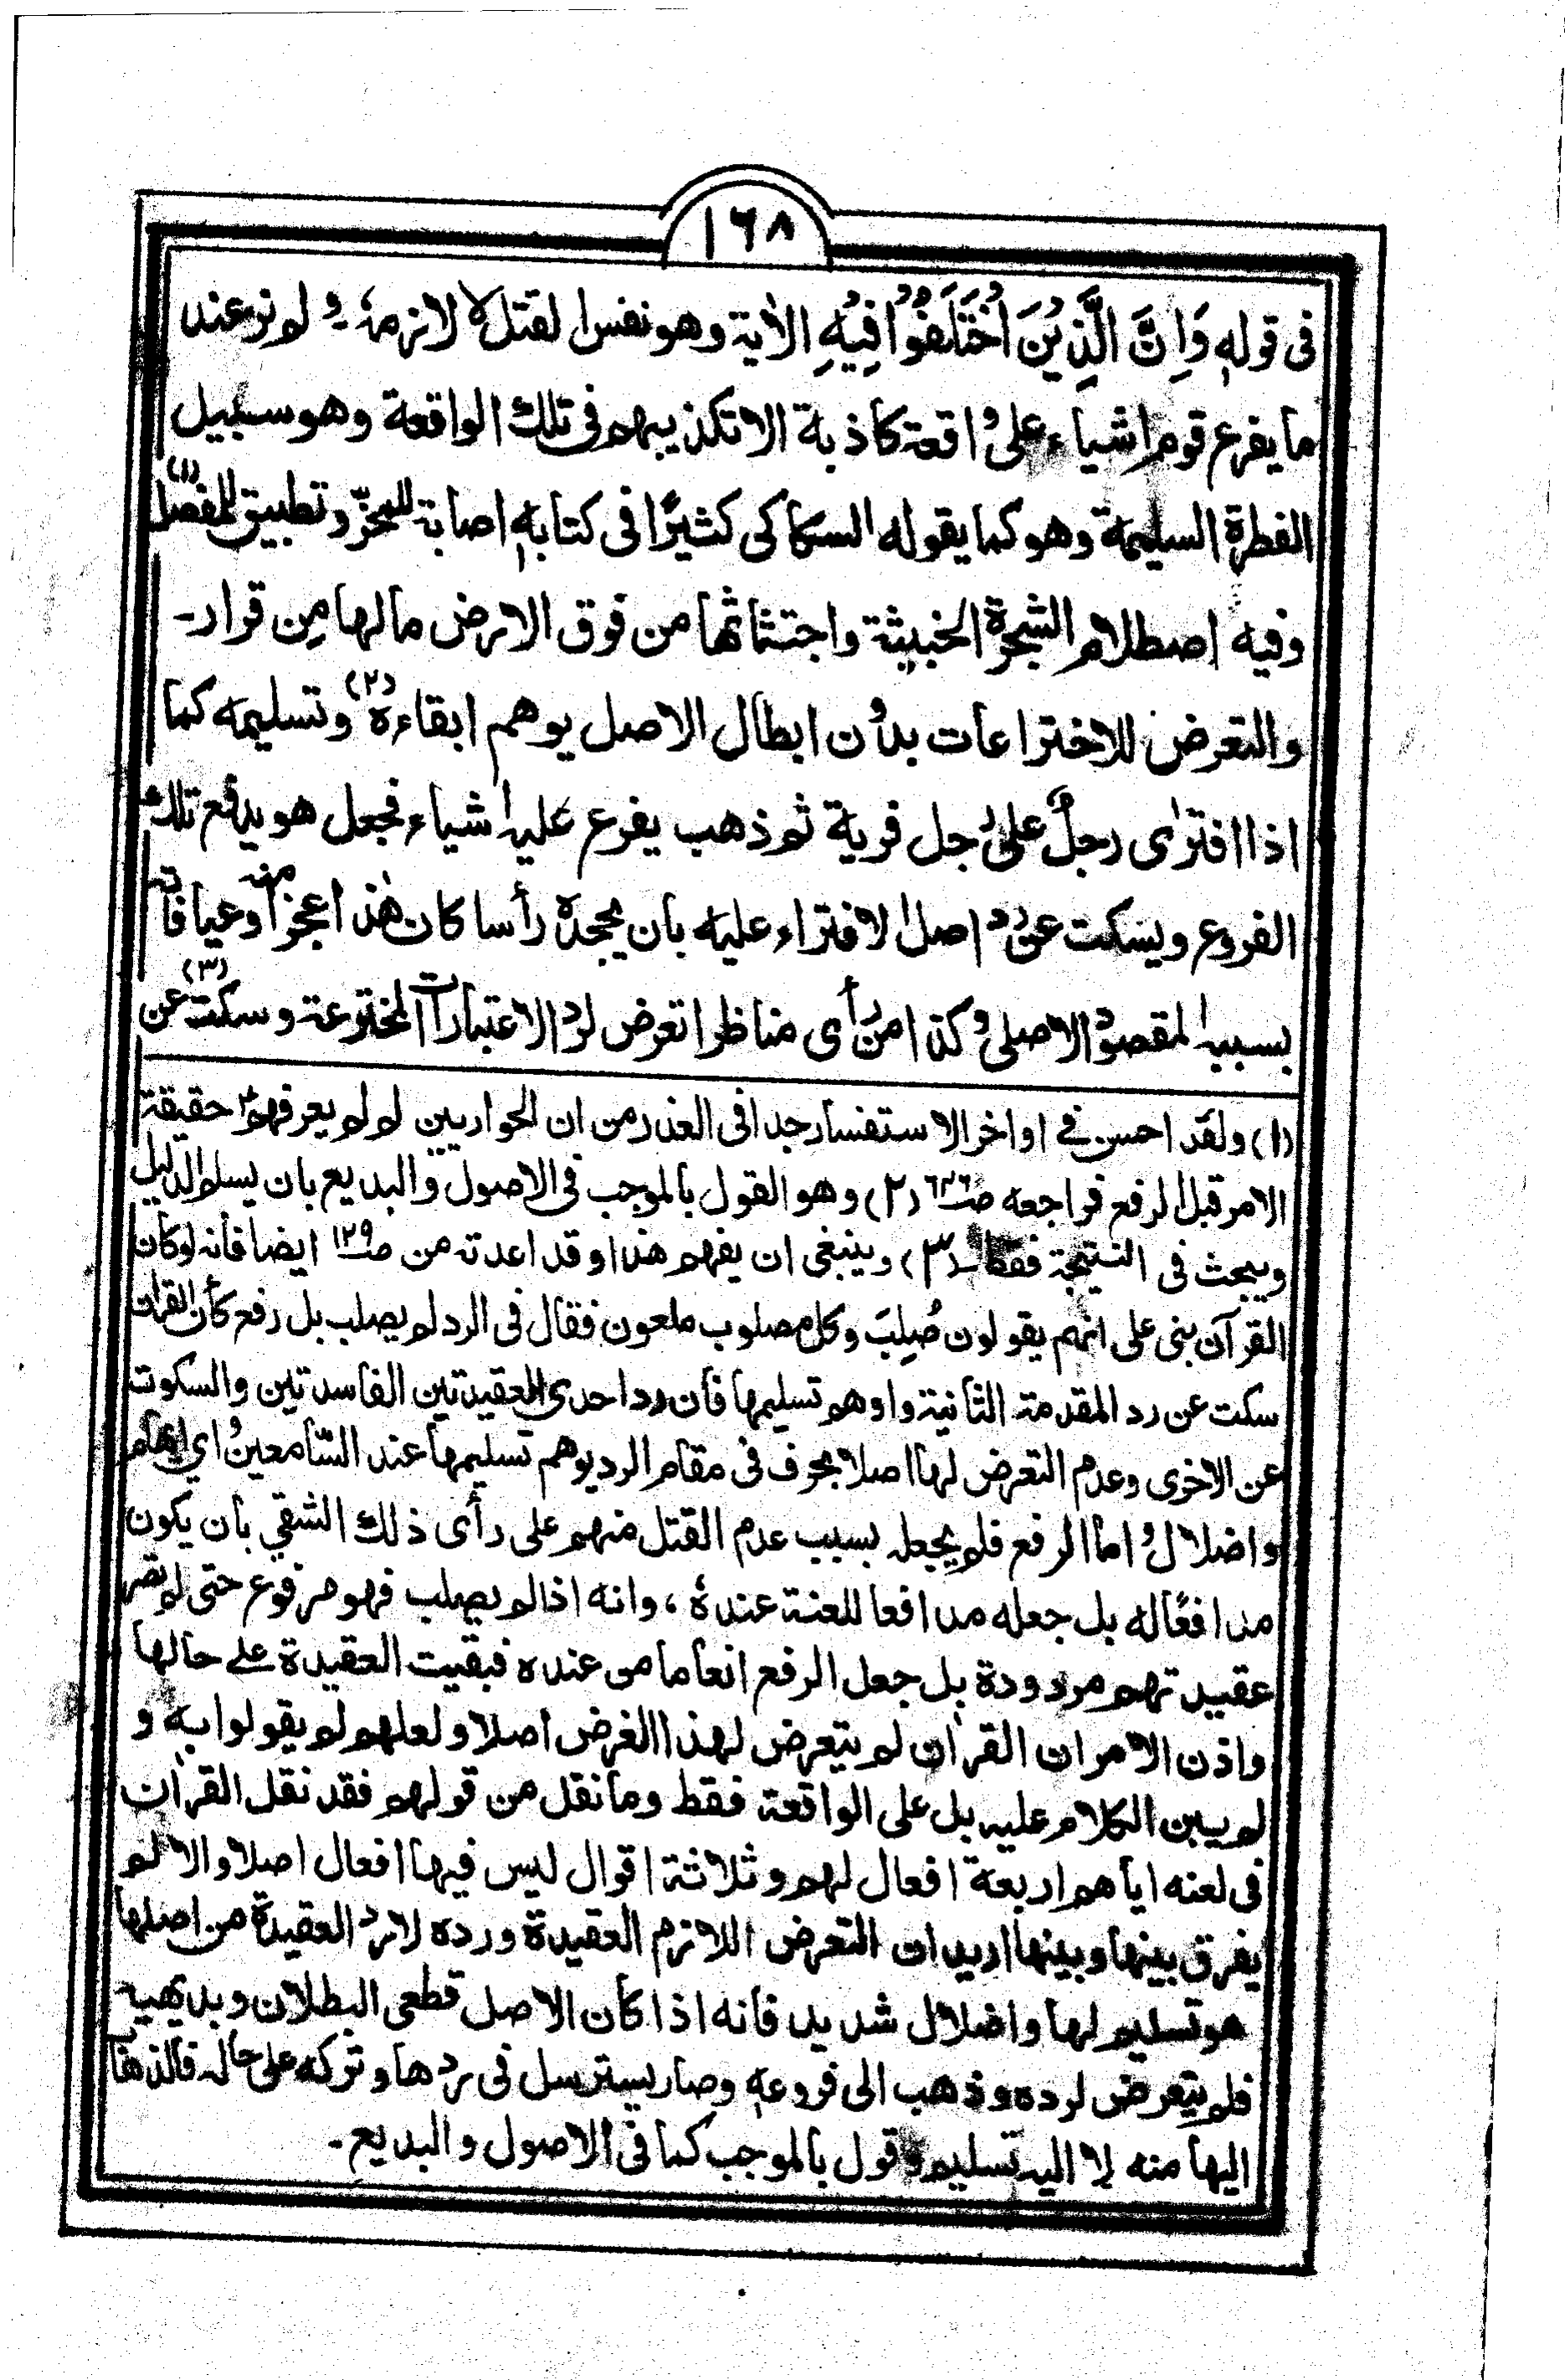 ١٦٨
فی قولہٖ وَاِنَّ الَّذِیْنَ اخْتَلَفُوْا فِیْهِ الاٰیة وهو نفس القتل لا لازمهٗ۔ ولم نر عند
ما یفرع قوم اشیاء علی واقعة کاذبة الا تکذیبهم فی تلك الواقعة وهو سبیل
الفطرة السلیمة وهو کما یقوله السکاکی کثیرًا فی کتابهٖ اصابة للمحزّ وتطبیق للمفصل (١)
وفیه اصطلام الشجرة الخبیثة واجتثاثها من فوق الارض مالها مِن قرار۔
والتعرض للاختراعات بدون ابطال الاصل یوهم ابقاءهٗ (٢) وتسلیمه کما
اذا افتری رجلٌ علی رجل فریة ثم ذهب یفرع علیه اشیاء فجعل هو یدفع تلك
الفروع ویسکت عن رد اصل الافتراء علیه بان یجحدهٗ رأسا کان هٰذا عجزا منه وعیا فاته
بسببه المقصود الاصلی وکذا من رأی مناظرا تعرض لرد الاعتبارات المخترعة وسکت (٣) عن
(١) ولقد احسن فی اواخر الاستفسار جدا فی العذر من ان الحواریین لو لم یعرفهم حقیقة
الامر قبل الرفع فراجعه صـ٦٣٦ (٢) وهو القول بالموجب فی الاصول والبدیع بان یسلم الدلیل
ویبحث فی النتیجة فقط (٣) وینبغی ان یفهم هذا وقد اعدته من صـ١٢٩ ایضا فانه لو کان
القرآن بنی علی انهم یقولون صُلِبَ وکل مصلوب ملعون فقال فی الرد لم یصلب بل رفع کأن القران
سکت عن رد المقدمة الثانیة واوهم تسلیمها فان رد احدی العقیدتین الفاسدتین والسکوت
عن الاخری وعدم التعرض لها اصلا بحرف فی مقام الرد یوهم تسلیمها عند السّامعین وای ایهام
واضلال واما الرفع فلم یجعله بسبب عدم القتل منهم علی رأی ذلك الشقی بان یکون
مدافعًا له بل جعله مدافعا للعنة عندهٗ، وانه اذا لم یصلب فهو مرفوع حتی لم تصر
عقیدتهم مردودة بل جعل الرفع انعاما من عنده فبقیت العقیدة علی حالها
واذن الامر ان القرٰان لم یتعرض لهذا الغرض اصلا ولعلهم لم یقولوا بهٖ و
لم یبن الکلام علیه بل علی الواقعة فقط وما نقل من قولهم فقد نقل القرٰان
فی لعنه ایاهم اربعة افعال لهم وثلاثة اقوال لیس فیها افعال اصلا والا لم
یفرق بینها وبینها ارید ان التعرض اللازم العقیدة ورده لا رد العقیدة من اصلها
هو تسلیم لها واضلال شدید فانه اذا کان الاصل قطعی البطلان وبدیهیه
فلم یتعرض لرده وذهب الی فروعهٖ وصار یسترسل فی ردها وترکه علی حاله فالذهاب
الیها منه لا الیه تسلیم وقول بالموجب کما فی الاصول والبدیع۔